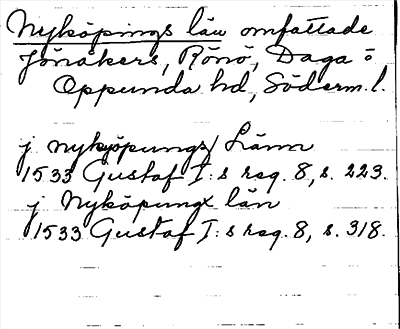 Nyköpings län omfattade
Jönåkers, Rönö, Daga o
Oppunda hd, Söderm. l.
j nykjöpungs/ Länn
1533 Gustaf I:s reg. 8, s. 223.
j Nyköpungx län
1533 Gustaf I:s reg. 8, s. 318.